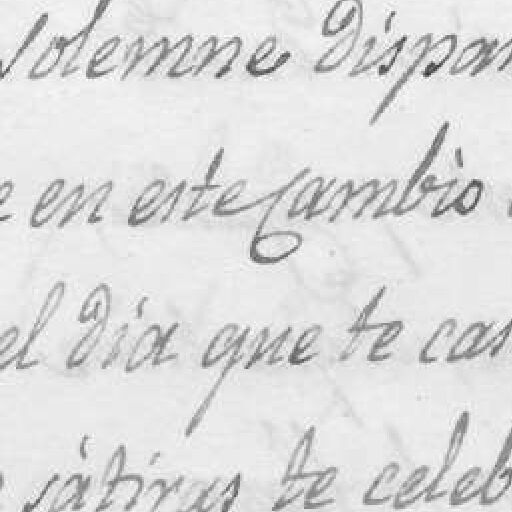 solemne dispar
e en este cambio
el dia que te cas
sátiras te celeb